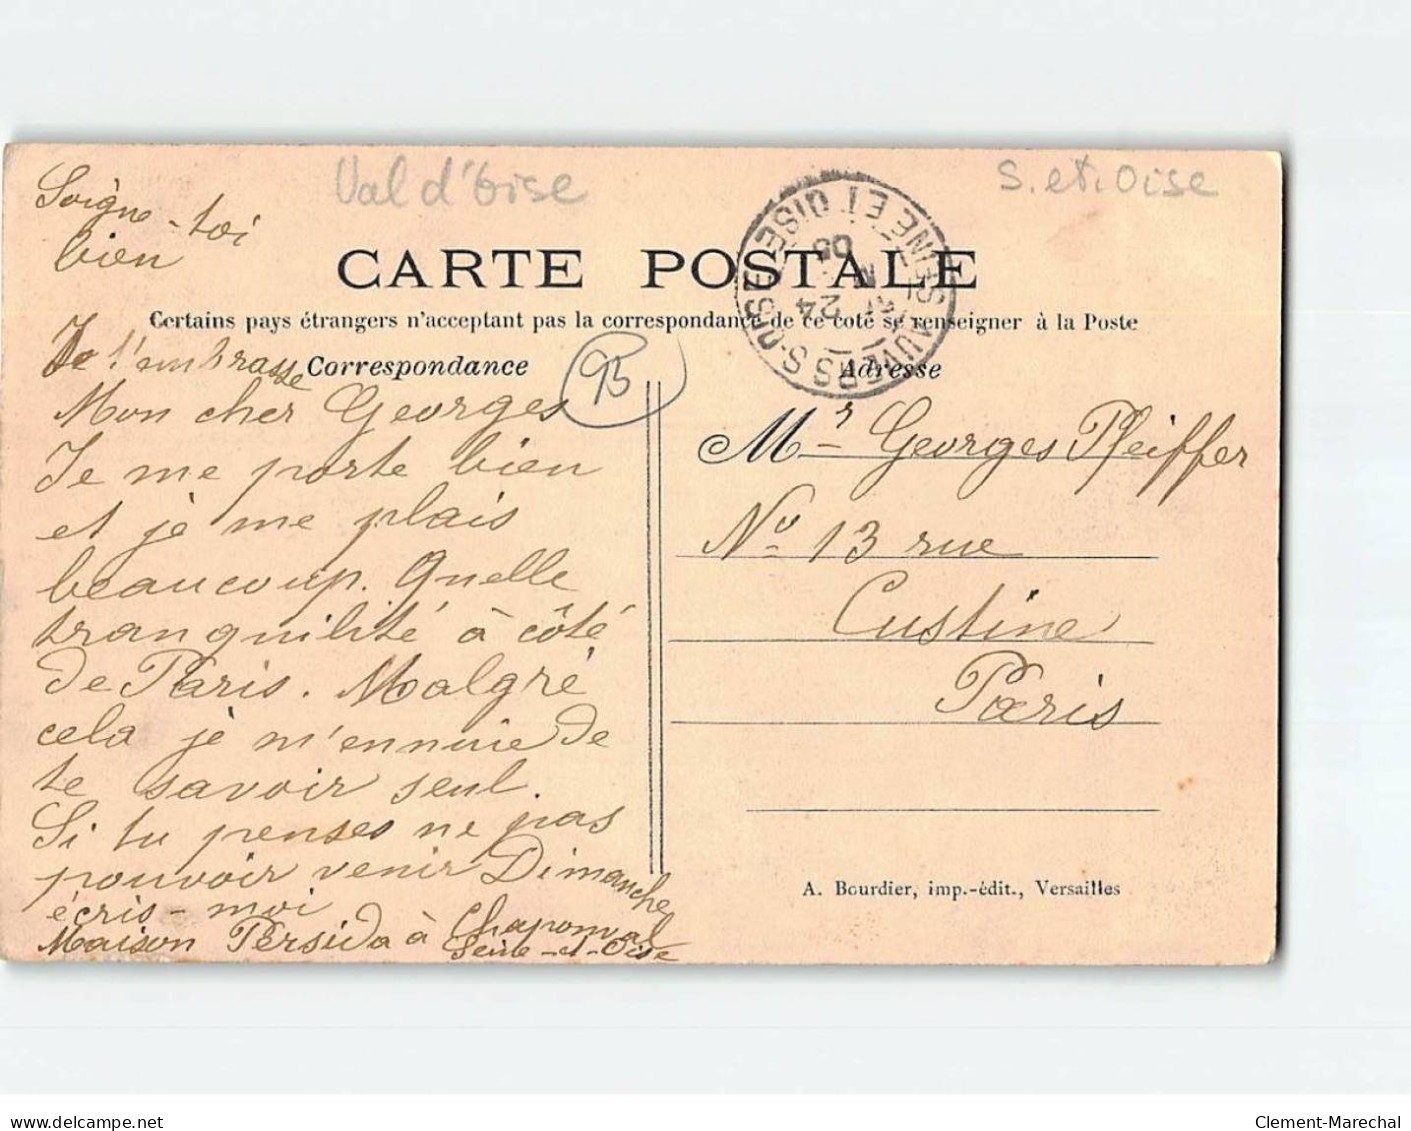 Soigne-toi
bien
Val d'Oise
S. et. Oise
CARTE POSTALE
Certains pays étrangers n'acceptent pas la correspondance de ce coté se renseigner à la Poste
Je t'embrasse
Correspondance
95
Adresse
AUVERS S-OISE
SEINE ET OISE
24
05
Mon cher Georges
Je me porte bien
et je me plais
beaucoup. Quelle
tranquilité à côté
de Paris. Malgré
cela je m'ennuie de
te savoir seul.
Si tu penses ne pas
pouvoir venir Dimanche
écris-moi
Maison Persida à Chaponval
Seine-et-Oise
Mr Georges Pfeiffer
No 13 rue
Custine
Paris
A. Bourdier, imp.-édit., Versailles
delcampe.net
Clement-Marechal